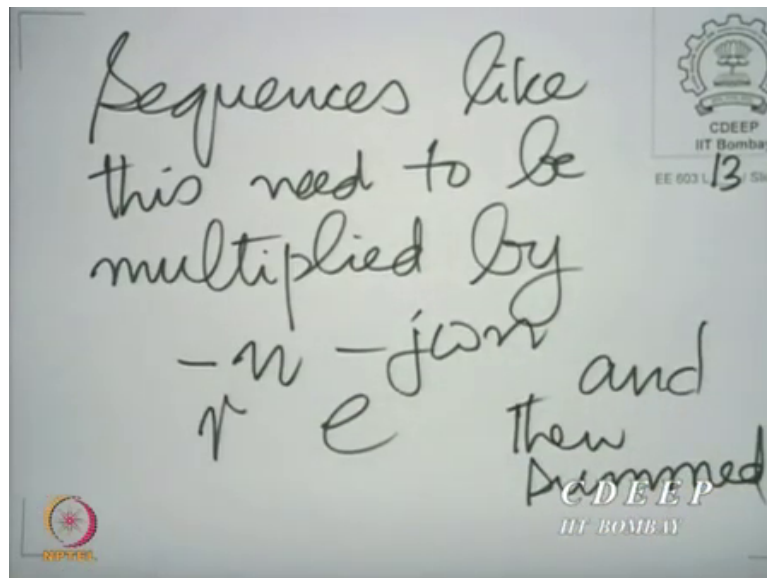 Sequences like
this need to be
multiplied by
r^{-n} e^{-jωn} and
then
summed
CDEEP
IIT Bombay
EE 603 L 13 / Sli
CDEEP
IIT BOMBAY
NPTEL